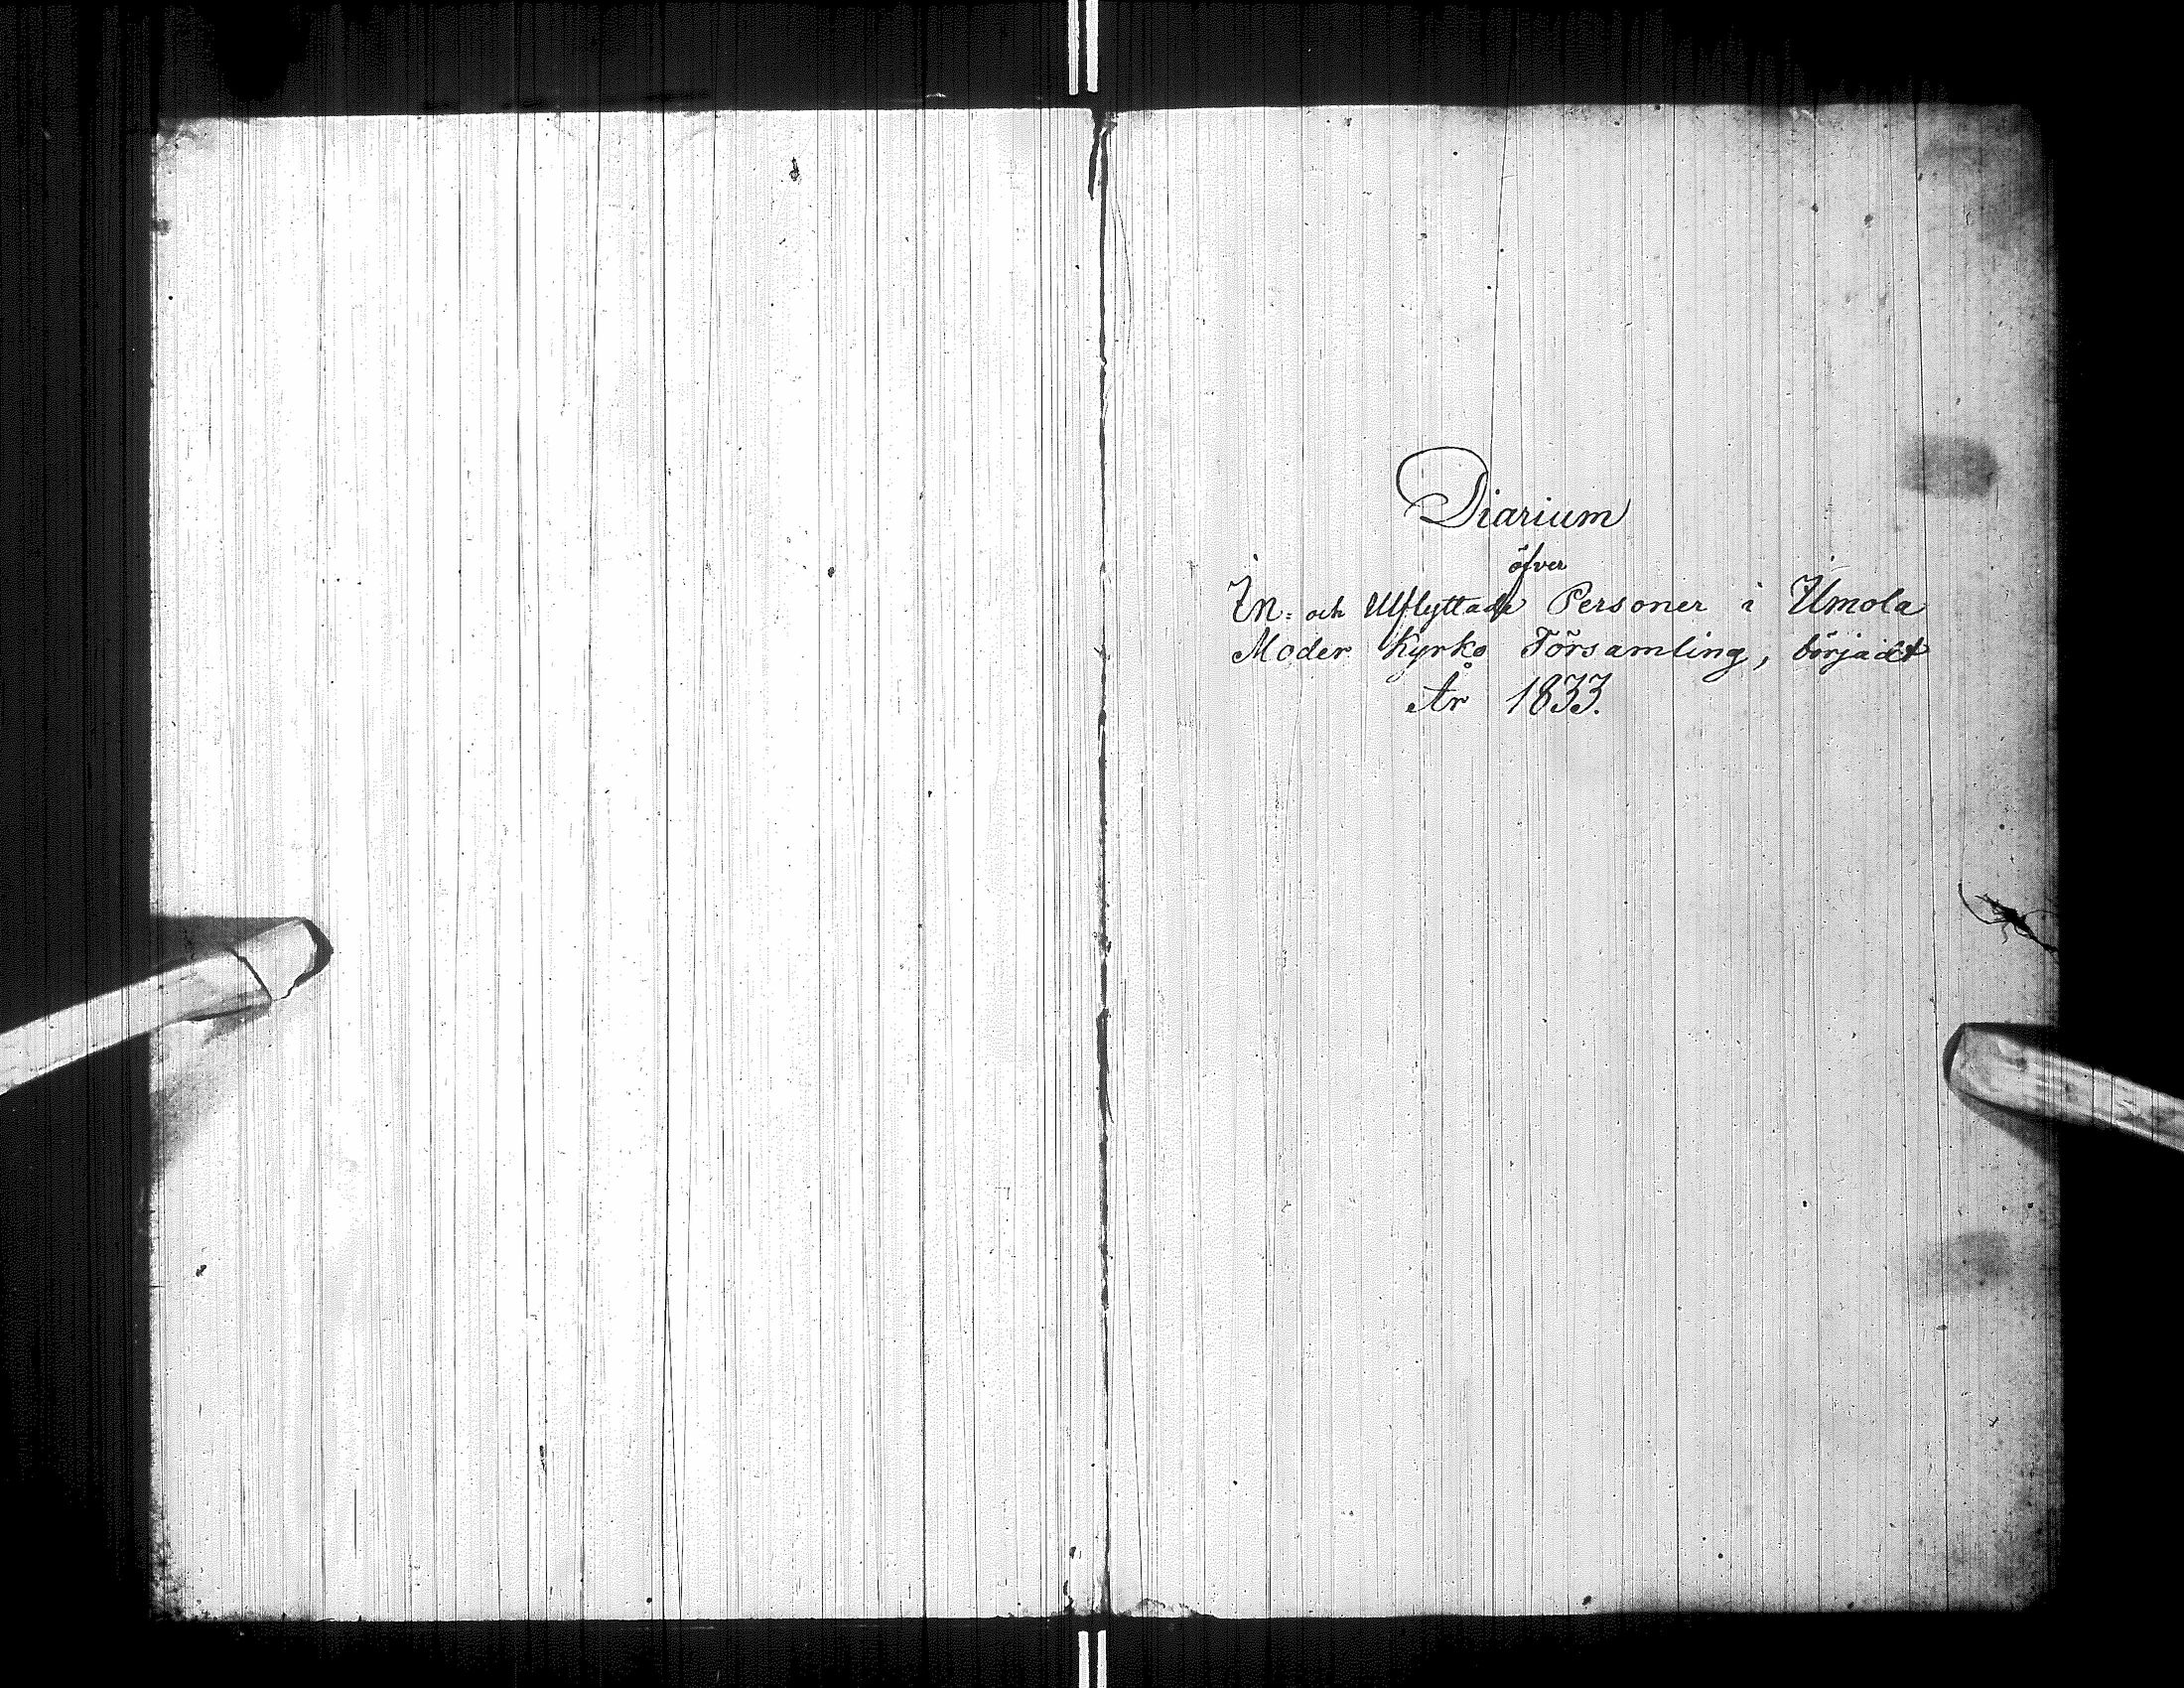 Diarium
öfver
In= och Utflyttade Personer i Ilmola
Moder Kyrko Församling, börjadt
År 1833.